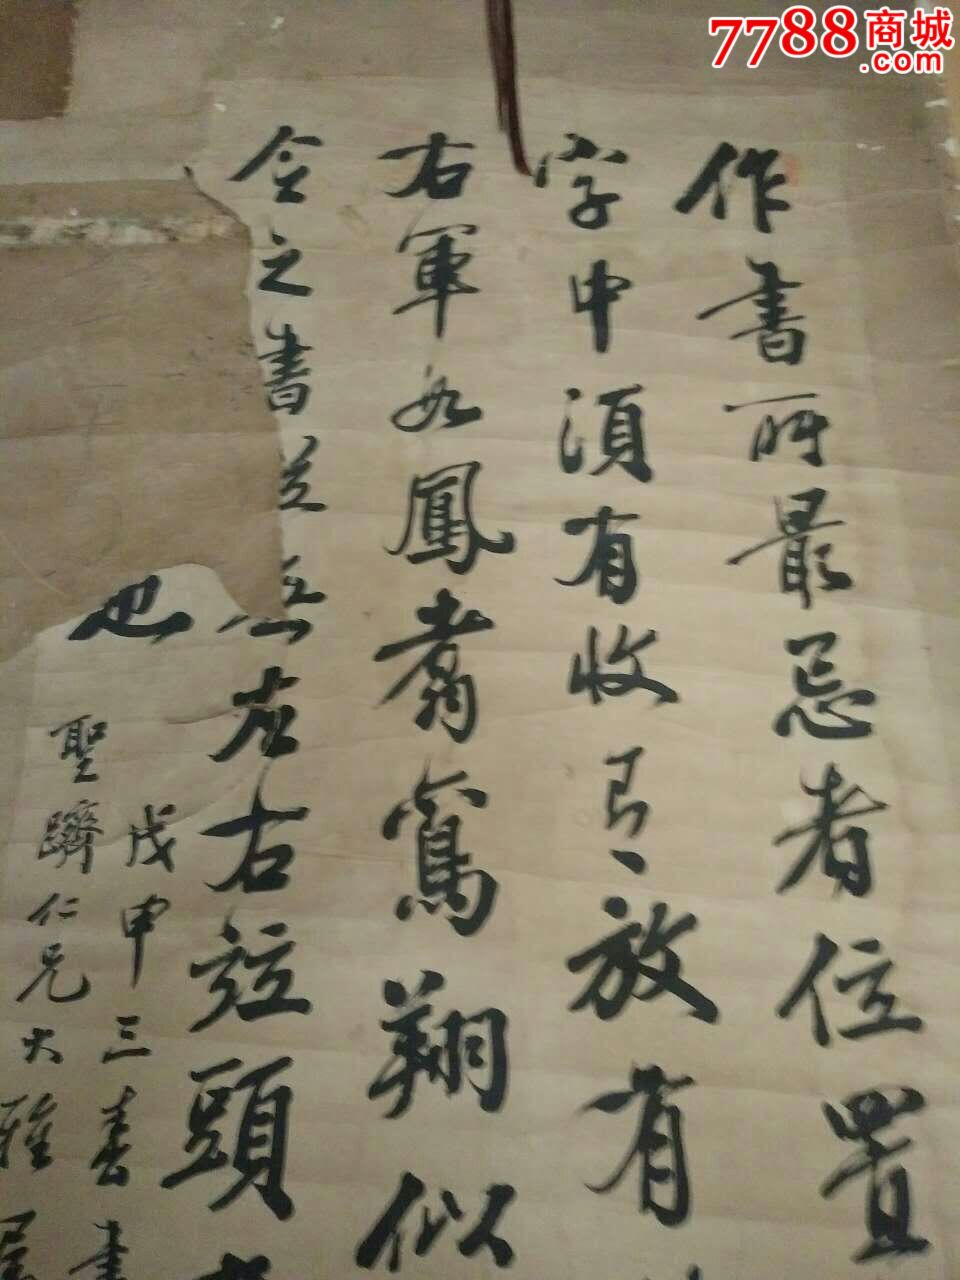 作書所最忌者位置
字中須有收有放有
右軍如鳳翥鸞翔似
令之書並無左右竝頭
也
戊申三春書
聖躋仁兄大雅屬
7788商城
.com